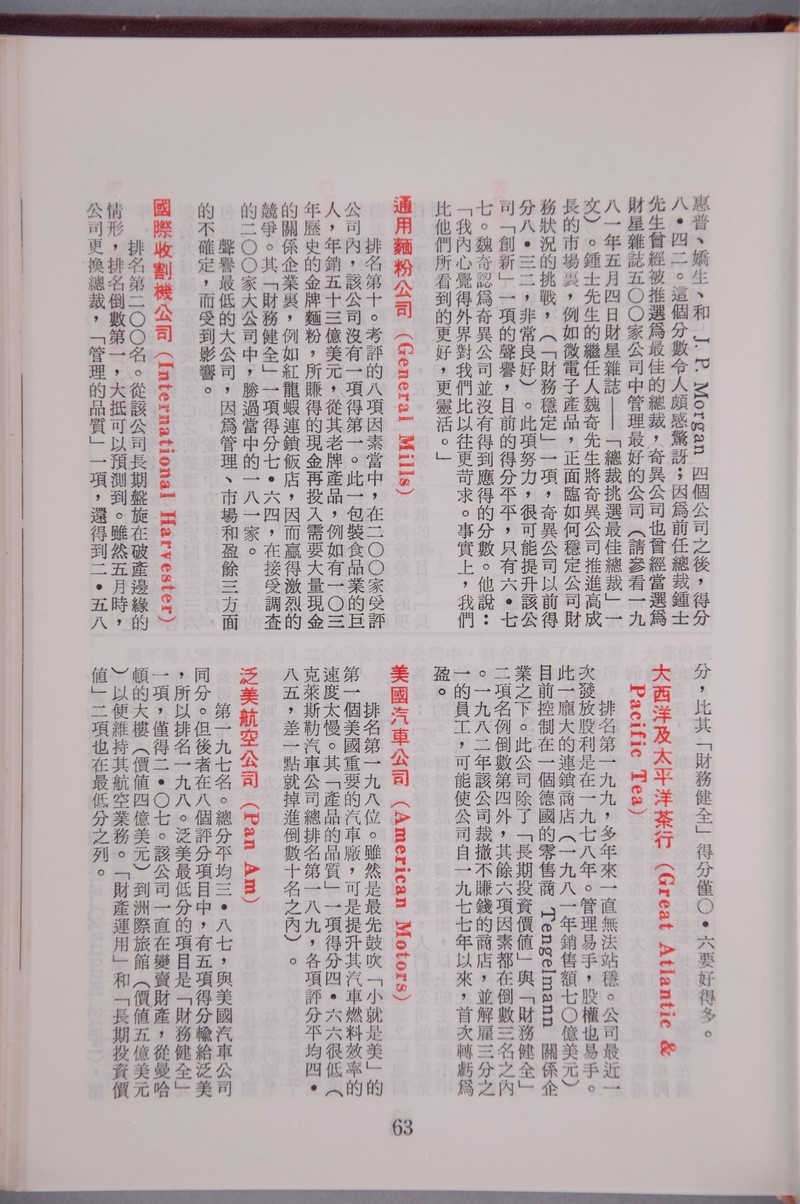 惠普、嬌生、和 J. P. Morgan 四個公司之後，得分
八•四二。這個分數令人頗感驚訝；因爲前任總裁鍾士
先生曾經被推選爲最佳的總裁，奇異公司也曾經當選爲
財星雜誌五○○家公司中管理最好的公司（請參看一九
八一年五月四日財星雜誌——「總裁挑選最佳總裁」一
文）。鍾士先生的繼任人魏奇先生將奇異公司推進高成
長的市場裏，例如微電子產品，正面臨如何穩定公司財
務狀況的挑戰，（「財務穩定」一項，奇異公司以前得
分八•三二，非常良好）。此項努力，很可能提升該公
司「創新」一項的聲譽，目前的得分平平，只有六•七
七。魏奇認爲奇異公司並沒有得到應得的分數。他說：
「我內心覺得外界對我們比以往更苛求。事實上，我們
比他們所看到的更好，更靈活。」
通用麵粉公司（General Mills）
排名第十。考評的八項因素當中，在二○○家受評
公司內，該公司沒有一項得第一。此一包裝食品業的巨
人，年銷五十三億美元，從其老牌產品，例如有一○三
年歷史的金牌麵粉，所賺得的現金再投入需要大量現金
的關係企業裏，例如紅龍蝦連鎖飯店，因而贏得激烈的
競爭。其「財務健全」一項得分七•六四，在接受調查
的二○○家大公司中，勝過當中的一八一家。
聲譽最低的大公司，因爲管理、市場和盈餘三方面
的不確定，而受到影響。
國際收割機公司（International Harvester）
排名第二○○名。從該公司長期盤旋在破產邊緣的
情形，排名倒數第一，大抵可以預測到。雖然五月時，
公司更換總裁，「管理的品質」一項，還得到二•五八
分，比其「財務健全」得分僅○•六要好得多。
大西洋及太平洋茶行（Great Atlantic &
Pacific Tea）
排名第一九九，多年來一直無法站穩。公司最近一
次發放股利是在一九七八年。管理易手，股權也易手。
此一龐大的連鎖商店（一九八一年銷售額七○億美元）
目前控制在一個德國的零售商 Tengelmann 關係企
業之下。此公司除了「長期投資價值」與「財務健全」
二項名例倒數第四外，其餘六項因素都在倒數三名之內
。一九八二年該公司裁撤不賺錢的商店，並解雇三分之
一的員工，可能使公司自一九七七年以來，首次轉虧爲
盈。
美國汽車公司（American Motors）
排名第一九八位。雖然是最先鼓吹「小就是美」的
第一個美國重要的汽車廠，可是提升其汽車燃料效率的
速度太慢。其「產品的品質」一項得分四•六六很低（
克萊斯勒汽車公司總排名第一八九，各項評分平均四•
八五，差一點就掉進倒數十名之內）。
泛美航空公司（Pan Am）
第一九七名。總分平均三•八七，與美國汽車公司
同分。但後者在八個評分項目中，有五項得分輸給泛美
，所以排名一九八。泛美最低分的項目是「財務健全」
一項，僅得二•○七。該公司一直在變賣財產，從曼哈
頓的大樓（價值四億美元）到洲際旅館（價值五億美元
）以便維持其航空業務。「財產運用」和「長期投資價
值」二項也在最低分之列。
63